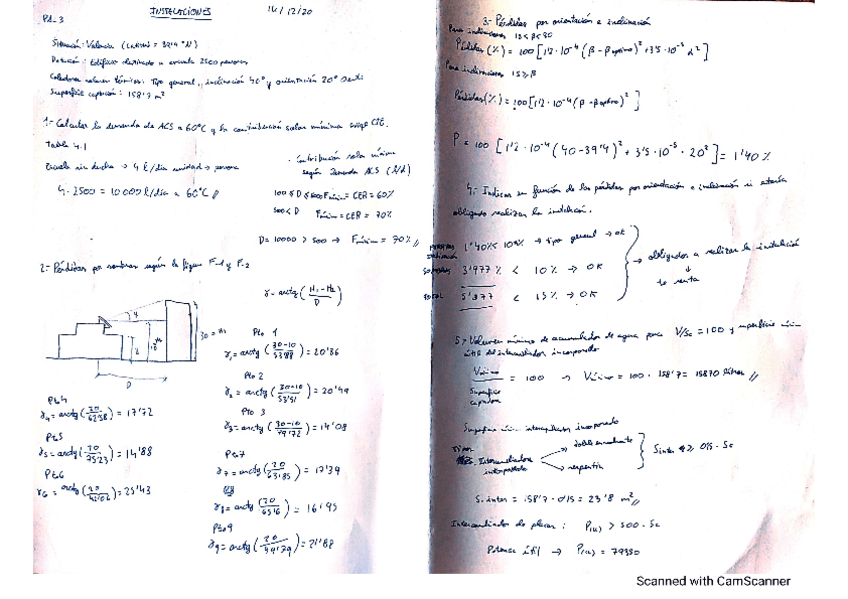 INSTALACIONES 14/12/20
P1-3
Situación: Valencia
Colectores solares térmicos: Tipo general, inclinación 40° y orientación 20°
Superficie captación: 158'7 m²
1.- Calcular la demanda de ACS a 60°C y la contribución solar mínima exige CTE.
Tabla 4.1
Escuela sin ducha → 4 l/día → persona
4 · 2500 = 10000 l/día a 60°C
Contribución solar mínima
según demanda ACS (l/d)
D = 10000 > 500 → Fmínim = 70%
2.- Pérdidas por sombras según la figura F-1 y F-2
γ = arctg (H1-H2 / D)
D
Pto 1
γ1 = arctg (30-10 / 53'88) = 20'36
Pto 2
γ2 = arctg (30-10 / 53'51) = 20'49
Pto 3
γ3 = arctg = 14'08
Pto4
γ4 = arctg (20 / 62'58) = 17'72
Pto5
γ5 = arctg (20 / 75'23) = 14'88
Pto6
γ6 = arctg = 25'43
Pto7
γ7 = arctg (20 / 63'85) = 17'39
γ8 = arctg = 16'95
Pto9
γ9 = arctg (20 / 49'79) = 21'88
3.- Pérdidas por orientación e inclinación
Para inclinaciones 15 < β < 90
Pérdidas (%) = 100 [1'2·10⁻⁴ (β - βóptimo)² + 3'5·10⁻⁵ α²]
Para inclinaciones 15 ≥ β
Pérdidas (%) = 100 [1'2·10⁻⁴ (β - βóptimo)²]
P = 100 [1'2·10⁻⁴ (40-39'4)² + 3'5·10⁻⁵ · 20²] = 1'40 %
4.- Indicar en función de las pérdidas por orientación e inclinación si estaría
obligado realizar la instalación.
1'40% 10% → tipo general → OK
3'977 % < 10% → OK
TOTAL 5'377 < 15% → OK
→ obligados a realizar la instalación
5.- Volumen mínimo de acumulador de agua para V/Sc = 100 y superficie mínim
útil del intercambiador incorporado
Vmínimo / Superficie captadora = 100 → Vmínimo = 100 · 158'7 = 15870 litros
Superficie intercambiador incorporado
Intercambiador incorporado
doble envolvente
serpentín
Sinter ≥ 0'15 · Sc
S. inter = 158'7 · 0'15 = 23'8 m²
Intercambiador de placas: P(u) > 500 · Sc
Potencia útil → P(u) = 79350
Scanned with CamScanner